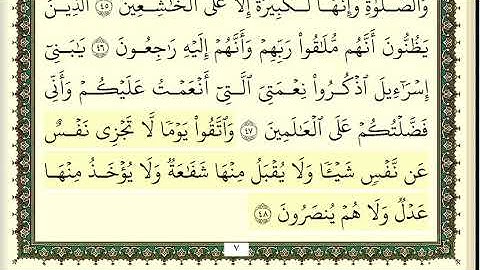 وَٱلصَّلَوٰةِ وَإِنَّهَا لَكَبِيرَةٌ إِلَّا عَلَى ٱلْخَٰشِعِينَ ٤٥ ٱلَّذِينَ
يَظُنُّونَ أَنَّهُم مُّلَٰقُوا۟ رَبِّهِمْ وَأَنَّهُمْ إِلَيْهِ رَٰجِعُونَ ٤٦ يَٰبَنِىٓ
إِسْرَٰٓءِيلَ ٱذْكُرُوا۟ نِعْمَتِىَ ٱلَّتِىٓ أَنْعَمْتُ عَلَيْكُمْ وَأَنِّى
فَضَّلْتُكُمْ عَلَى ٱلْعَٰلَمِينَ ٤٧ وَٱتَّقُوا۟ يَوْمًا لَّا تَجْزِى نَفْسٌ
عَن نَّفْسٍ شَيْـًٔا وَلَا يُقْبَلُ مِنْهَا شَفَٰعَةٌ وَلَا يُؤْخَذُ مِنْهَا
عَدْلٌ وَلَا هُمْ يُنصَرُونَ ٤٨
٧